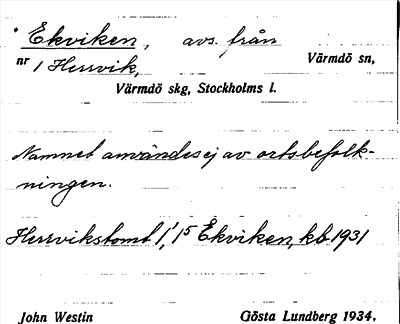 * Ekviken, avs. från
nr 1 Herrvik, Värmdö sn,
Värmdö skg, Stockholms l.
Namnet användes ej av ortsbefolk-
ningen.
Herrvikstomt 1, 15 Ekviken, kb 1931
John Westin Gösta Lundberg 1934.